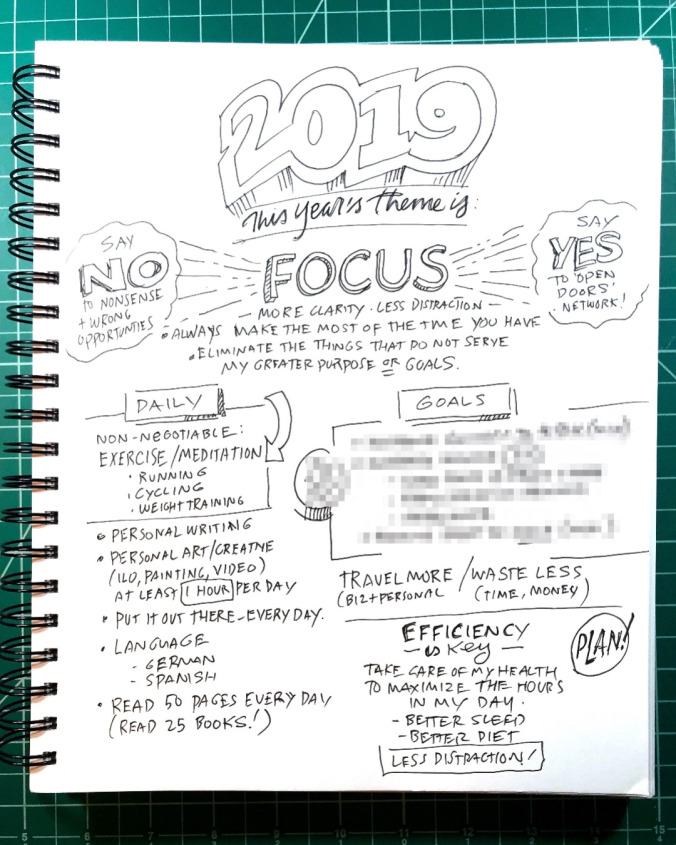 2019
This year's theme is:
SAY
NO
TO NONSENSE
+ WRONG
OPPORTUNTIES
FOCUS
SAY
YES
TO 'OPEN
DOORS'
NETWORK!
— MORE CLARITY · LESS DISTRACTION —
• ALWAYS MAKE THE MOST OF THE TIME YOU HAVE
• ELIMINATE THE THINGS THAT DO NOT SERVE
MY GREATER PURPOSE OR GOALS.
DAILY
NON-NEGOTIABLE:
EXERCISE/MEDITATION
• RUNNING
• CYCLING
• WEIGHT TRAINING
• PERSONAL WRITING
• PERSONAL ART/CREATIVE
(ILO, PAINTING, VIDEO)
AT LEAST 1 HOUR PER DAY
• PUT IT OUT THERE - EVERY DAY.
• LANGUAGE
- GERMAN
- SPANISH
• READ 50 PAGES EVERY DAY
(READ 25 BOOKS!)
GOALS
TRAVEL MORE / WASTE LESS
(BIZ + PERSONAL (TIME, MONEY)
EFFICIENCY
— is Key —
PLAN!
TAKE CARE OF MY HEALTH
TO MAXIMIZE THE HOURS
IN MY DAY.
- BETTER SLEEP
- BETTER DIET
LESS DISTRACTION!
5
6
7
8
9
10
11
12
13
14
15